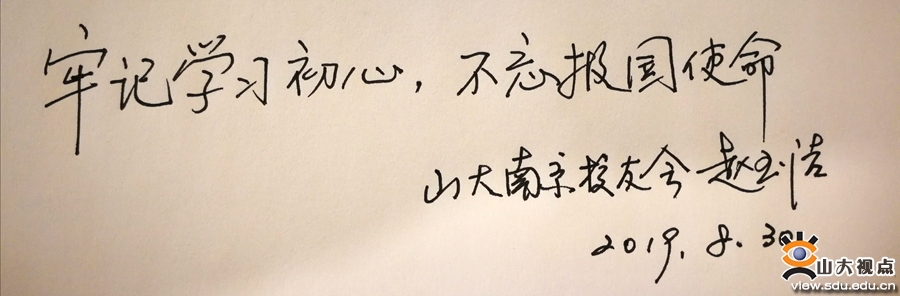 牢记学习初心，不忘报国使命
山大南京校友会 赵玉洁
2019.8.30
山大视点
view.sdu.edu.cn